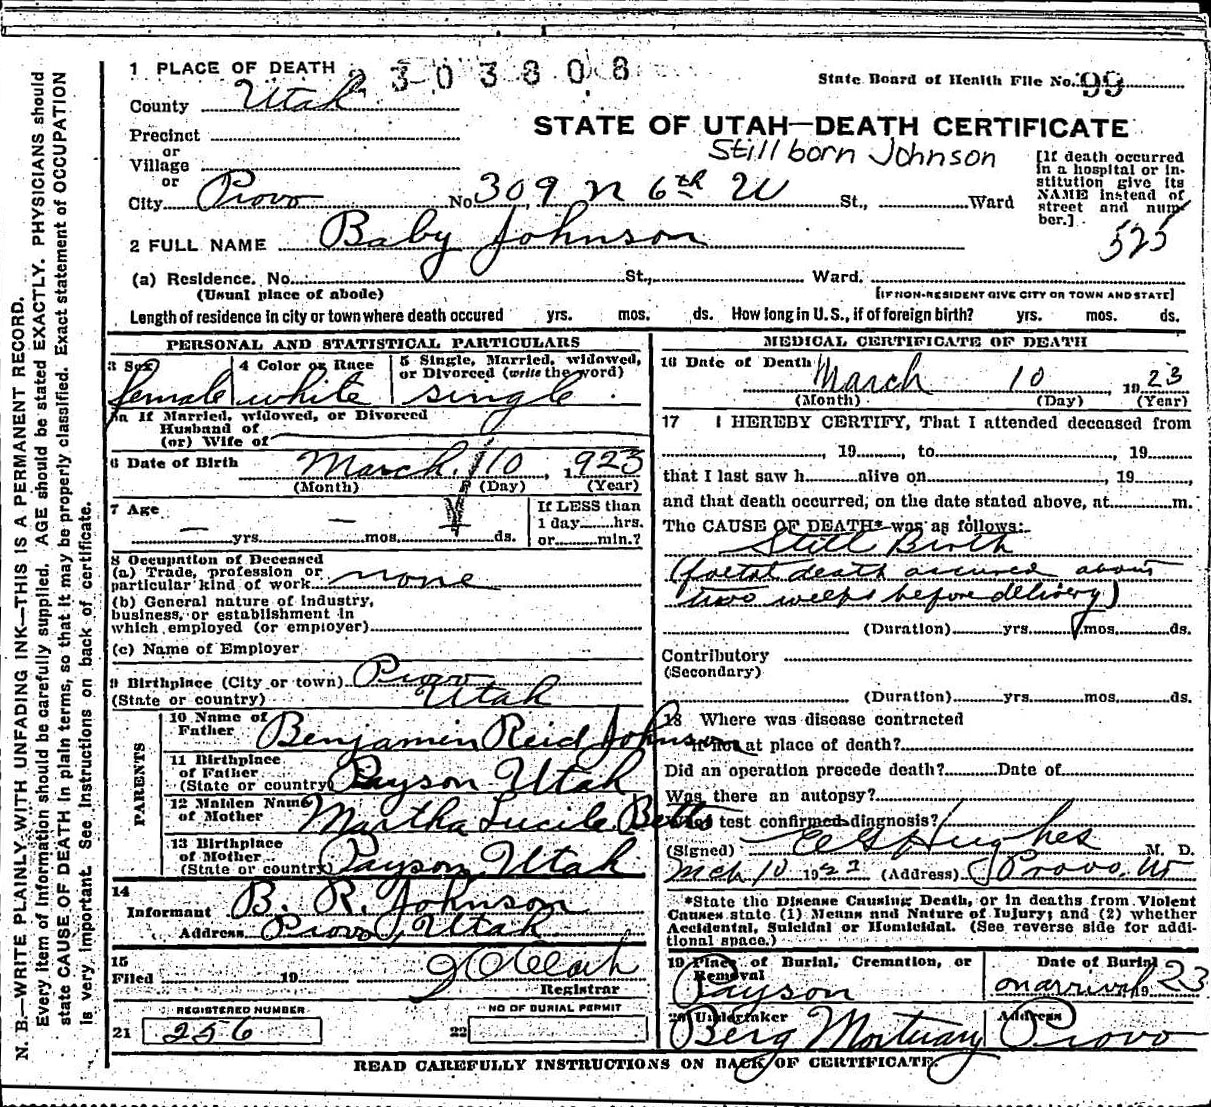 N. B.—WRITE PLAINLY WITH UNFADING INK—THIS IS A PERMANENT RECORD.
Every item of information should be carefully supplied. AGE should be stated EXACTLY. PHYSICIANS should
state CAUSE OF DEATH in plain terms, so that it may be properly classified. Exact statement of OCCUPATION
is very important. See instructions on back of certificate.
1 PLACE OF DEATH 2303808
State Board of Health File No. 99
County Utah
STATE OF UTAH—DEATH CERTIFICATE
Precinct
or
Village
or
Stillborn Johnson
[If death occurred
in a hospital or in-
stitution give its
NAME instead of
street and num-
ber.]
City Provo No 309 N 6th W St., Ward
525
2 FULL NAME Baby Johnson
(a) Residence. No. St., Ward.
(Usual place of abode) [IF NON-RESIDENT GIVE CITY OR TOWN AND STATE]
Length of residence in city or town where death occured yrs. mos. ds. How long in U. S., if of foreign birth? yrs. mos. ds.
PERSONAL AND STATISTICAL PARTICULARS
3 Sex female
4 Color or Race white
5 Single, Married, widowed,
or Divorced (write the word)
single
5a If Married, widowed, or Divorced
Husband of
(or) Wife of
6 Date of Birth March 10, 1923
(Month) (Day) (Year)
7 Age
— yrs. — mos. ds.
If LESS than
1 day hrs.
or min.?
8 Occupation of Deceased
(a) Trade, profession or
particular kind of work none
(b) General nature of industry,
business, or establishment in
which employed (or employer)
(c) Name of Employer
9 Birthplace (City or town) Provo
(State or country) Utah
PARENTS
10 Name of
Father Benjamin Reid Johnson
11 Birthplace
of Father
(State or country) Payson Utah
12 Maiden Name
of Mother Martha Lucile Betts
13 Birthplace
of Mother
(State or country) Payson, Utah
14
Informant B. R. Johnson
Address Provo, Utah
15
Filed 19
Registrar
REGISTERED NUMBER
21 256
NO OF BURIAL PERMIT
22
MEDICAL CERTIFICATE OF DEATH
16 Date of Death March 10 1923
(Month) (Day) (Year)
17 I HEREBY CERTIFY, That I attended deceased from
, 19, to , 19
that I last saw h alive on , 19
and that death occurred, on the date stated above, at m.
The CAUSE OF DEATH* was as follows:
Still Birth
(foetal death occured about
two weeks before delivery)
(Duration) yrs. mos. ds.
Contributory
(Secondary)
(Duration) yrs. mos. ds.
18 Where was disease contracted
if not at place of death?
Did an operation precede death? Date of
Was there an autopsy?
What test confirmed diagnosis?
(Signed) Hughes M. D.
Mch 10 19 (Address) Provo,
*State the Disease Causing Death, or in deaths from Violent
Causes state (1) Means and Nature of Injury; and (2) whether
Accidental, Suicidal or Homicidal. (See reverse side for addi-
tional space.)
19 Place of Burial, Cremation, or
Removal
Payson
Date of Burial
on arrival 19 23
20 Undertaker
Berg Mortuary
Address
Provo
READ CAREFULLY INSTRUCTIONS ON BACK OF CERTIFICATE.